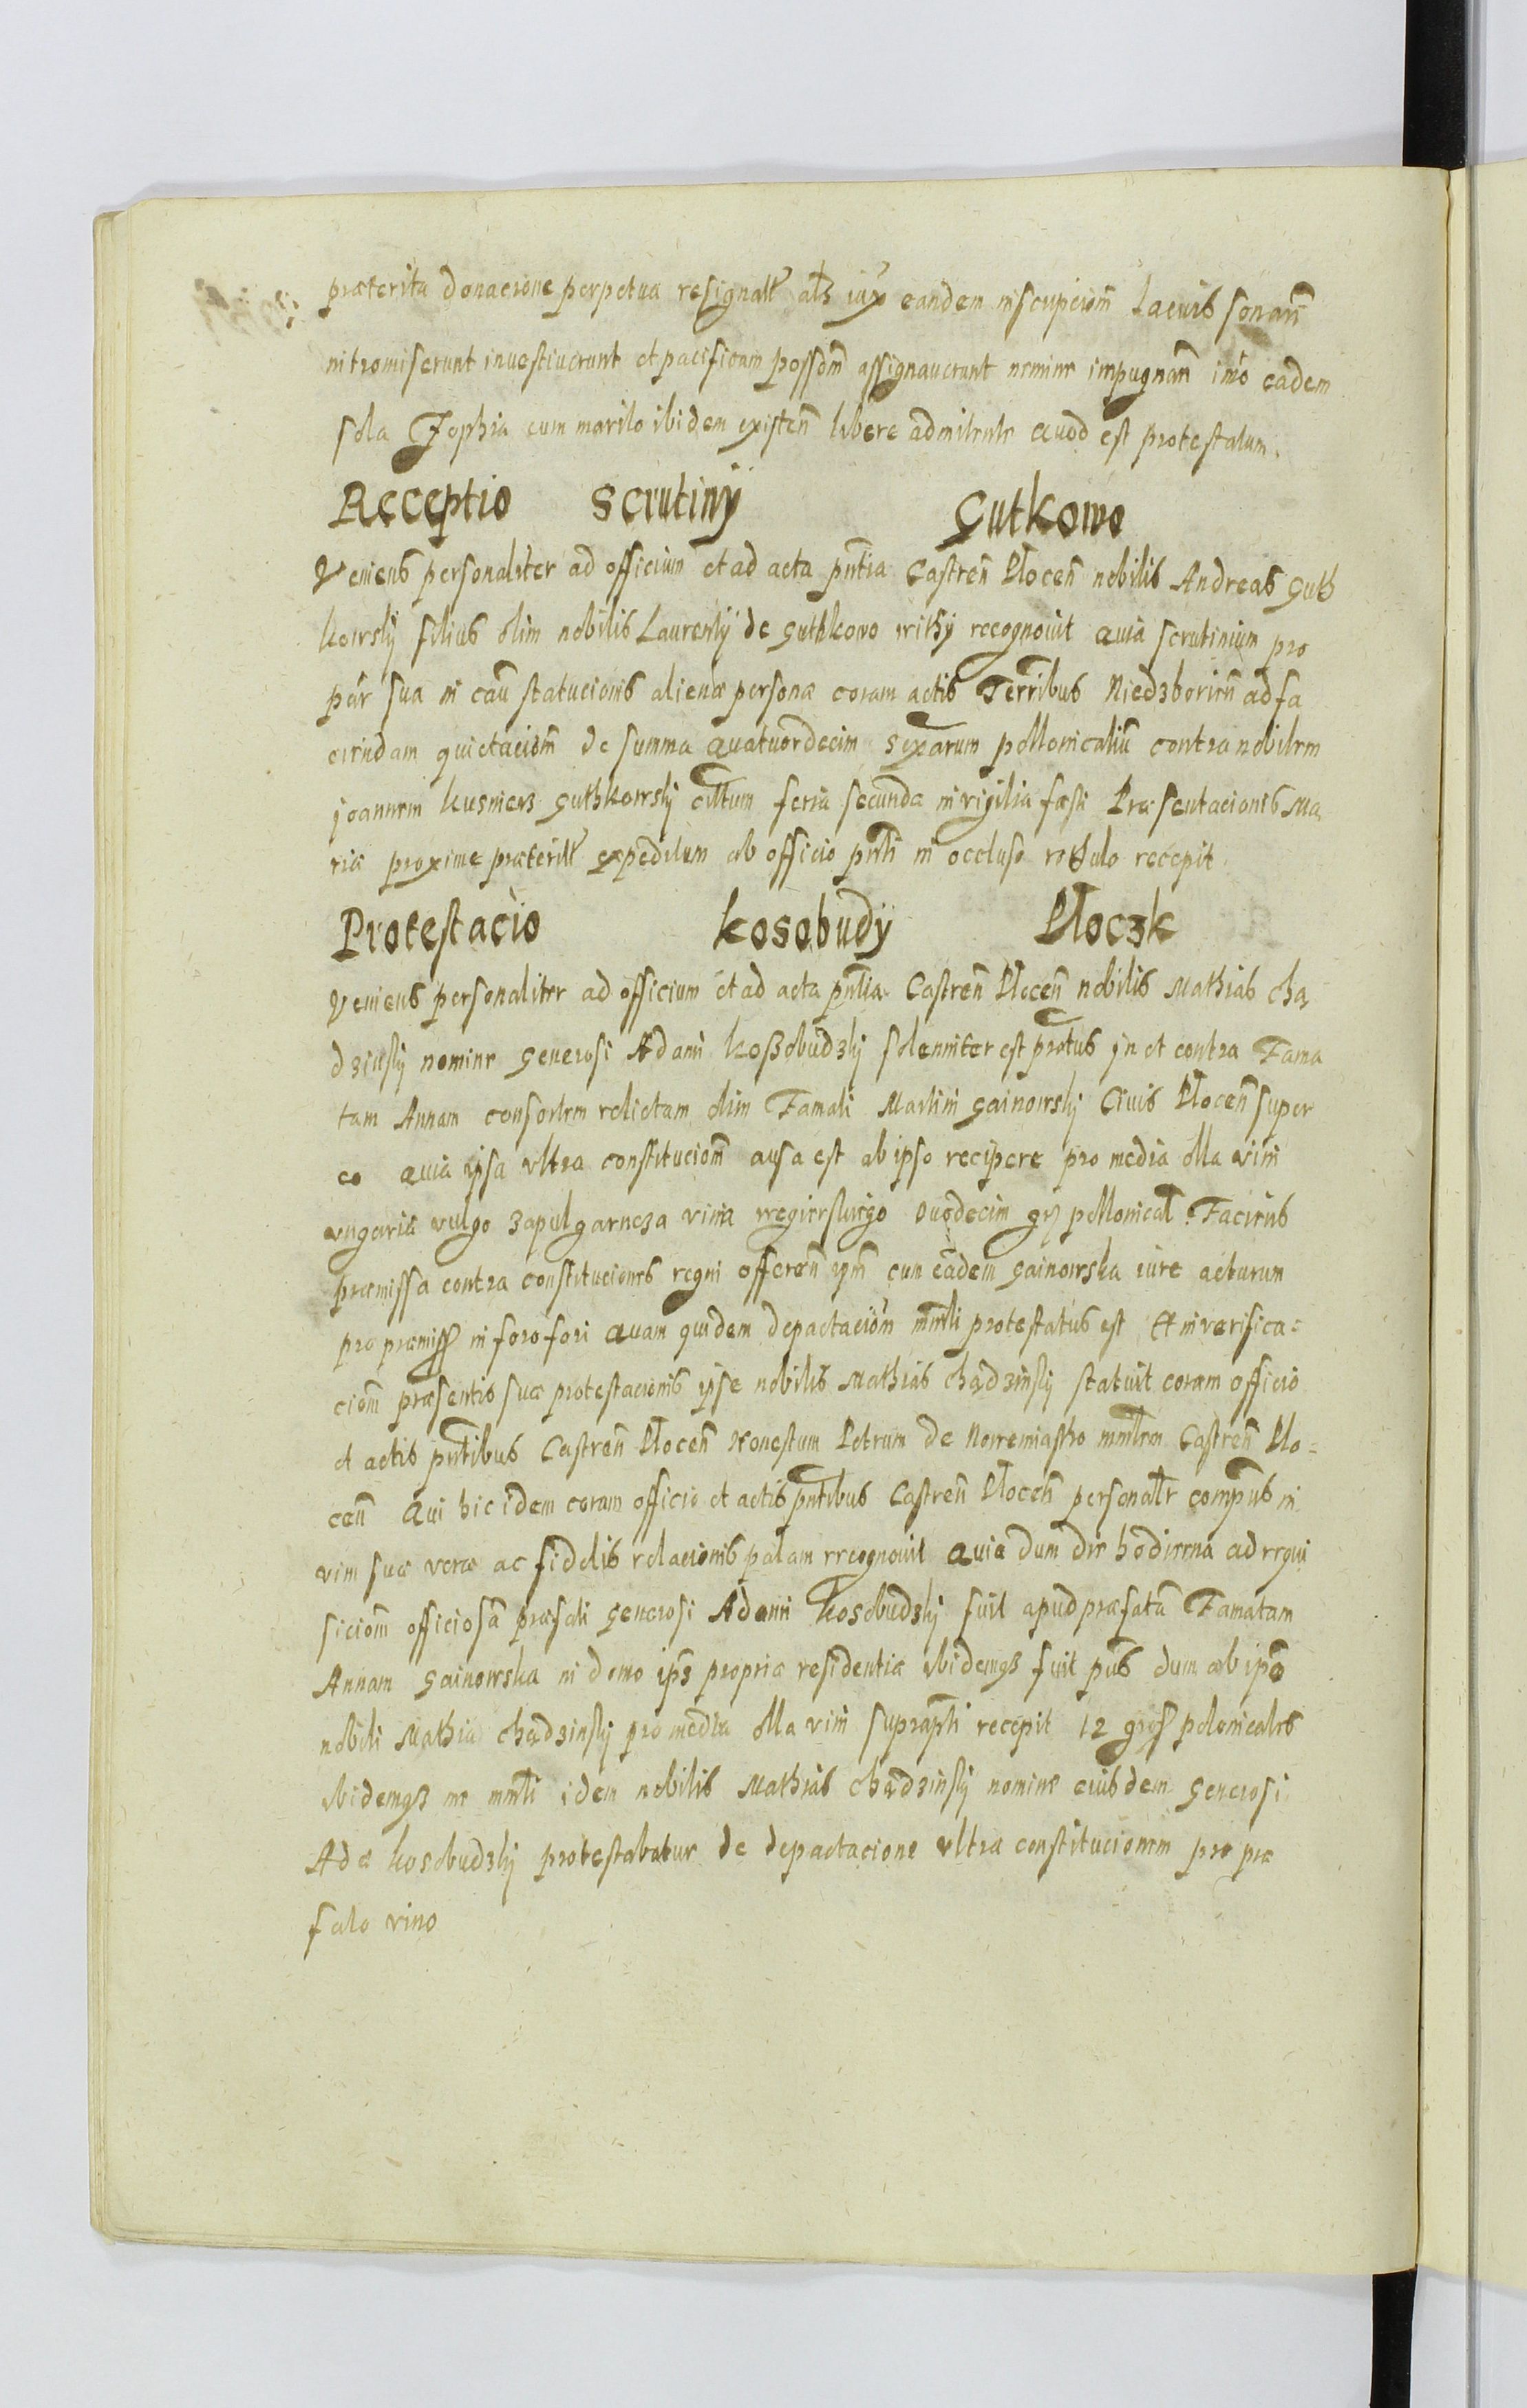 præterita donacione perpetua resignatt als iuxo eandem inscripciom Lacius sonañ
intromiserunt investiverunt et pacificam possom assignaverunt nemine impugnañ imo eadem
sola Zophia cum marito ibidem existeñ libere admitente Quod est protestatum.
Receptio Scrutinÿ Gutkowo
Veniens personaliter ad officium et ad acta pntia Castreñ Płoceñ nobilis Andreas Guth
kowskÿ filius olim nobilis Laurentÿ de Guthkowo recognovit Quia scrutinium pro
par sua in cau statucionis alienæ personæ coram actis Terribus Niedzborien ad fa
ciendam quietaciom de summa Quatuordecim sexarum pollonicaliu contra nobilem
Joannem kusnierz Guthkowskÿ feria secunda in vigilia fæsti Præsentacionis Ma
riæ proxime præteritt expeditum ab officio pnti in occluso rothulo recepit
Protestacio kosobudÿ Płoczk
Veniens personaliter ad officium et ad acta pntia Castreñ Płoceñ nobilis Mathias cha
dzinskÿ nomine Generosi Adami koßobudzkj solenniter est protus jn et contra Fama
tam Annam consortem relictam olim Famati Martini Gainowskj Civis Płoceñ super
eo Quia ipsa ultra constituciom ausa est ab ipso recipere pro media olla vini
ungariæ vulgo zapulgarncza vina wegierskiego duodecim gr pollonical Faciens
præmissa contra constituciones regni offereñ ipm cum eadem Gainowska iure acturum
pro præmiss in foro fori Quam quidem depactaciom mntli protestatus est Et in verifica=
ciom præsentis suæ protestacionis ipse nobilis Mathias chądzinskÿ statuit coram officio
et actis pntibus Castreñ Płoceñ Honestum Petrum de Nowemiasto mntlem Castreñ Plo=
ceñ Qui hic idem coram officio et actis pntibus Castreñ Płoceñ personalr compns in
vim suæ veræ ac fidelis relacionis palam recognovit Quia dum die hodierna ad requi
siciom officiosã præfati Generosi Adami kosobudzkj fuit apud præfatã Famatam
Annam Gainowska in domo ips propriæ residentiæ ibidemqz fuit pns dum ab ipso
nobili Mathia chądzinskÿ pro media olla vini suprapti recepit 12 gros polonicales
ibidemqz me mntli idem nobilis Mathias chądzinskÿ nomine eiusdem Generosi
Adæ kosobudzkj protestabatur de depactacione ultra constitucionem pro præ
fato vino